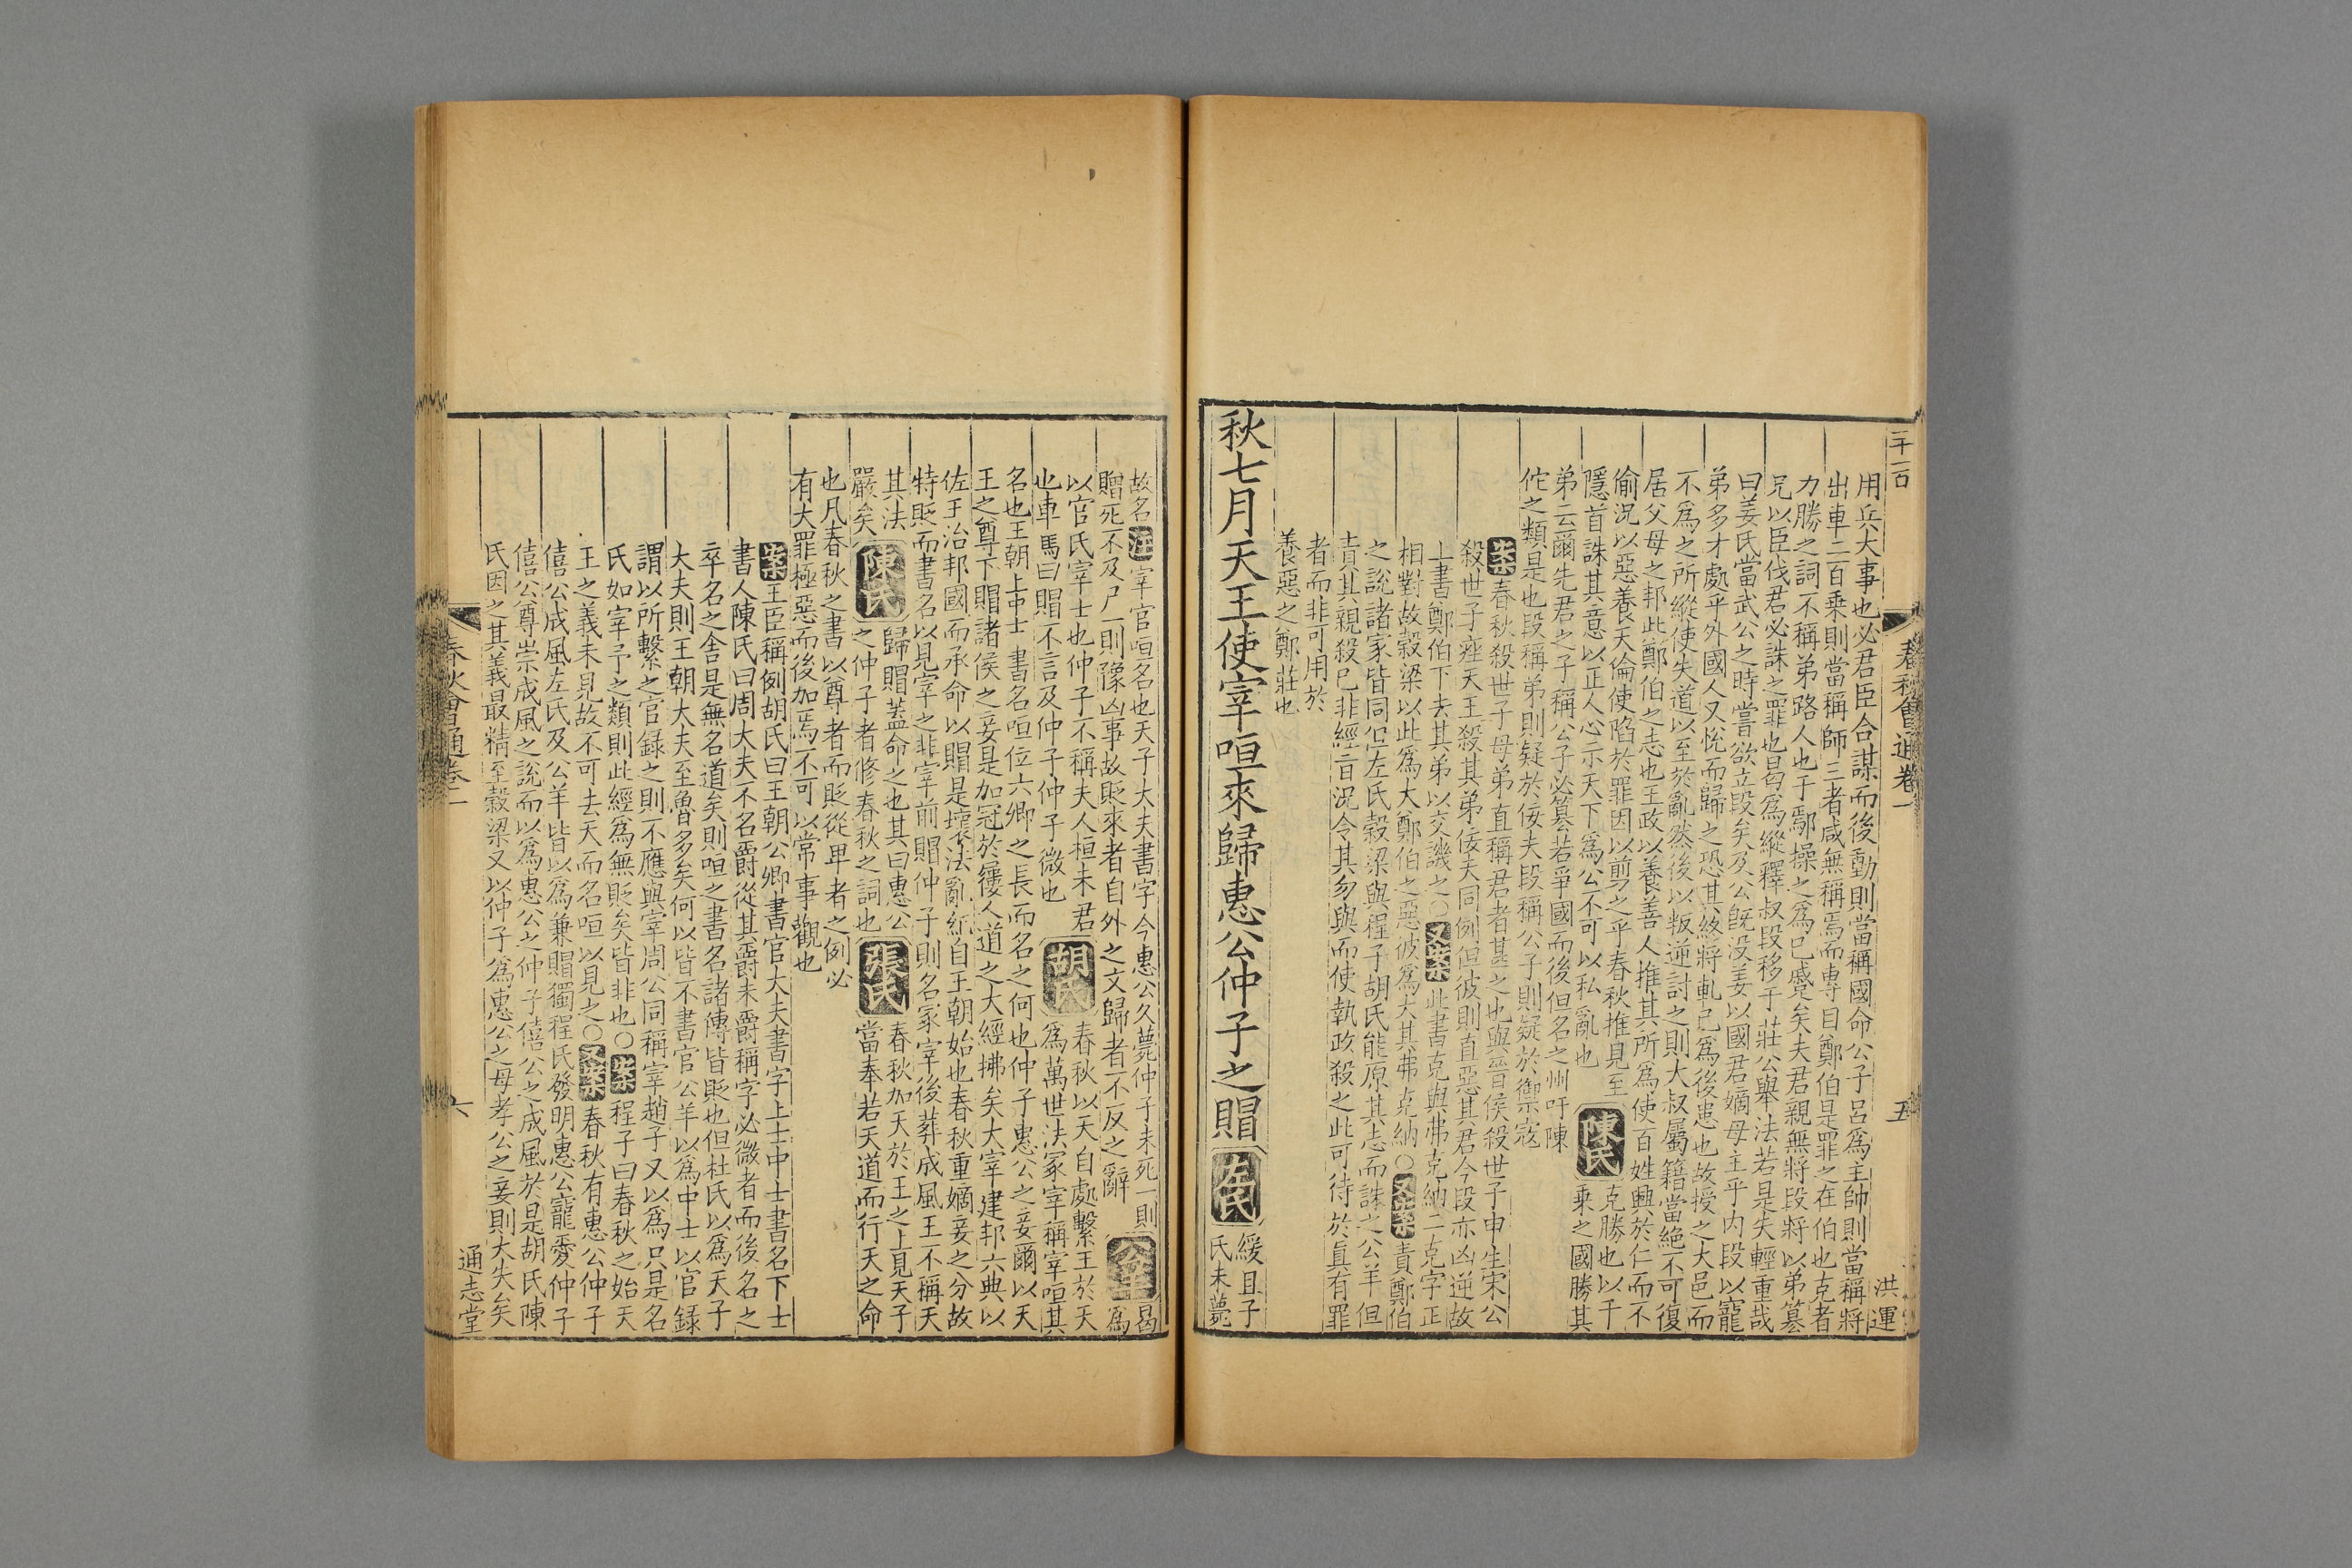 春秋會通卷一
五
洪運
用兵大事也必君臣合謀而後動則當稱國命公子呂為主帥則當稱將
出車二百乘則當稱師三者咸無稱焉而專目鄭伯是罪之在伯也克者
力勝之詞不稱弟路人也于鄢操之為已蹙矣夫君親無將段將以弟篡
兄以臣伐君必誅之罪也曷為縱釋叔段移于莊公舉法若是失輕重哉
曰姜氏當武公之時嘗欲立段矣及公旣没姜以國君嫡母主乎内段以寵
弟多才處乎外國人又悅而歸之恐其終將軋己為後患也故授之大邑而
不為之所縱使失道以至於亂然後以叛逆討之則大叔屬籍當絶不可復
居父母之邦此鄭伯之志也王政以養善人推其所為使百姓興於仁而不
偷況以惡養天倫使陷於罪因以剪之乎春秋推見至
隱首誅其意以正人心示天下為公不可以私亂也
陳氏
克勝也以千
乗之國勝其
弟云爾先君之子稱公子必篡若爭國而後但名之州吁陳
佗之類是也段稱弟則疑於佞夫段稱公子則疑於禦寇
案春秋殺世子母弟直稱君者甚之也與晉侯殺世子申生宋公
殺世子痤天王殺其弟佞夫同例但彼則直惡其君今段亦凶逆故
上書鄭伯下去其弟以交譏之〇又案此書克與弗克納二克字正
相對故穀梁以此為大鄭伯之惡彼為大其弗克納〇又案責鄭伯
之説諸家皆同但左氏穀梁與程子胡氏能原其志而誅之公羊但
責其親殺已非經旨況令其勿與而使執政殺之此可待於眞有罪
者而非可用於
養惡之鄭莊也
秋七月天王使宰咺來歸惠公仲子之賵
左氏
緩且子
氏未薨
故名注宰官咺名也天子大夫書字今惠公久薨仲子未死一則
贈死不及尸一則豫凶事故貶來者自外之文歸者不反之辭
公羊
曷
為
以官氏宰士也仲子不稱夫人桓未君
也車馬曰賵不言及仲子仲子微也
胡氏
春秋以天自處繫王於天
為萬世法冢宰稱宰咺其
名也王朝上中士書名咺位六卿之長而名之何也仲子惠公之妾爾以天
王之尊下賵諸侯之妾是加冠於屨人道之大經拂矣大宰建邦六典以
佐王治邦國而承命以賵是壞法亂紀自王朝始也春秋重嫡妾之分故
特貶而書名以見宰之非宰前賵仲子則名冢宰後葬成風王不稱天
其法
嚴矣
陳氏
歸賵蓋命之也其曰惠公
之仲子者修春秋之詞也
張氏
春秋加天於王之上見天子
當奉若天道而行天之命
也凡春秋之書以尊者而貶從卑者之例必
有大罪極惡而後加焉不可以常事觀也
案王臣稱例胡氏曰王朝公卿書官大夫書字上士中士書名下士
書人陳氏曰周大夫不名爵從其爵未爵稱字必微者而後名之
卒名之舎是無名道矣則咺之書名諸傳皆貶也但杜氏以為天子
大夫則王朝大夫至魯多矣何以皆不書官公羊以為中士以官録
謂以所繫之官録之則不應與宰周公同稱宰趙子又以為只是名
氏如宰予之類則此經為無貶矣皆非也〇案程子曰春秋之始天
王之義未見故不可去天而名咺以見之〇又案春秋有惠公仲子
僖公成風左氏及公羊皆以為兼賵獨程氏發明惠公寵愛仲子
僖公尊崇成風之説而以為惠公之仲子僖公之成風於是胡氏陳
氏因之其義最精至穀梁又以仲子為惠公之母孝公之妾則大失矣
春秋會通卷一
六
通志堂